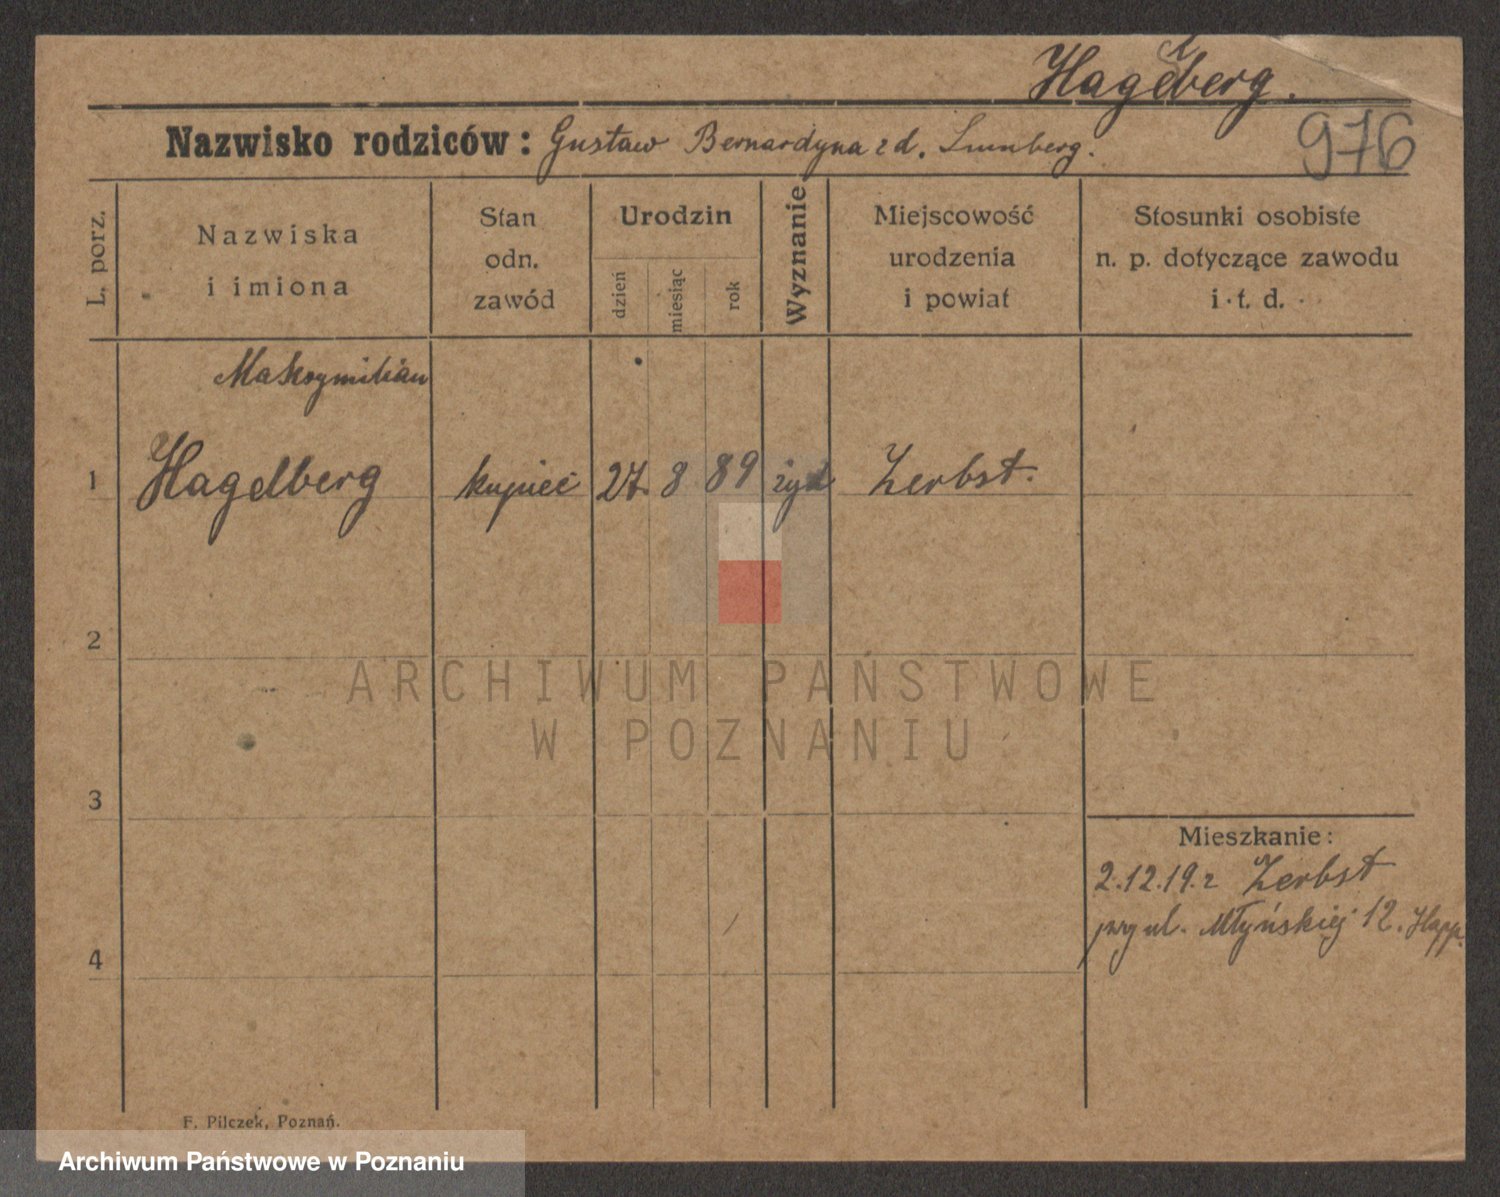 Hagelberg.
976
Nazwisko rodziców: Gustaw Bernardyna z d.
L. porz.
Nazwiska
i imiona
Stan
odn.
zawód
Urodzin
dzień
miesiąc
rok
Wyznanie
Miejscowość
urodzenia
i powiat
Stosunki osobiste
n. p. dotyczące zawodu
i t. d.
Maksymilian
1 Hagelberg kupiec 27. 8 89 żyd Zerbst.
2
3
4
Mieszkanie:
2.12.19. z Zerbst
przy ul. Młyńskiej 12. Happ.
F. Pilczek, Poznań.
ARCHIWUM PAŃSTWOWE
W POZNANIU
Archiwum Państwowe w Poznaniu